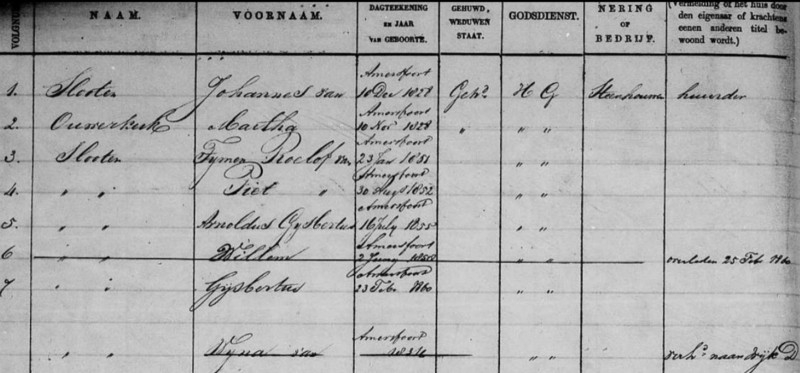 VOLGNU
NAAM. VOORNAAM. DAGTEEKENING EN JAAR VAN GEBOORTE. GEHUWD, WEDUWEN STAAT. GODSDIENST. NERING OF BEDRIJF. (Vermelding of het huis door den eigenaar of krachtens eenen anderen titel bewoond wordt.)
Amersfoort
1. Slooten Johannes van 10 Dec 1828 Geh.d H G Steenhouwer huurder
Amersfoort
2. Ouwerkerk Martha 10 Nov 1828 " " "
Amersfoort
3. Slooten Tymen Roelof van 23 Jan 1851 " "
Amersfoort
4. " " Piet " 30 Aug 1852 " "
Amersfoort
5. " " Arnoldus Gysbertus 16 July 1855 " "
Amersfoort
6 " " Willem 2 Juny " " overleden 25 Feb 1860
Amersfoort
7 " " Gysbertus 23 Feb 1860 " "
Amersfoort
" " Wyna van " " verh.s naar wijk D